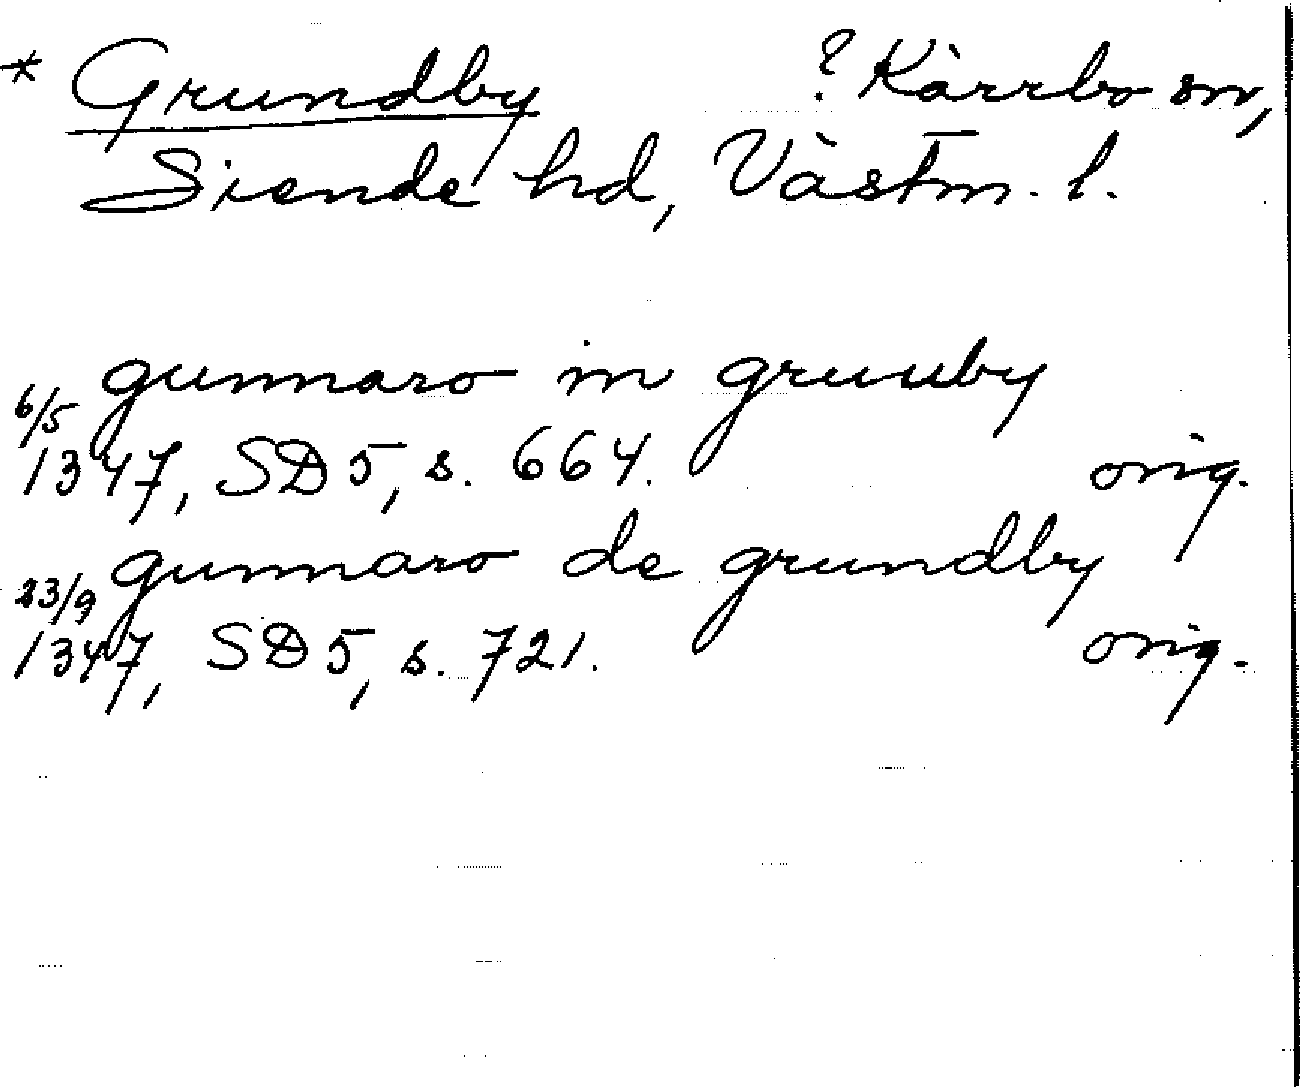 * Grundby ? Kärrbo sn,
Siende hd, Västm. l.
gunnaro in gruuby
6/5 1347, SD 5, s. 664. orig.
gunnaro de grundby
23/9 1347, SD 5, s. 721. orig.